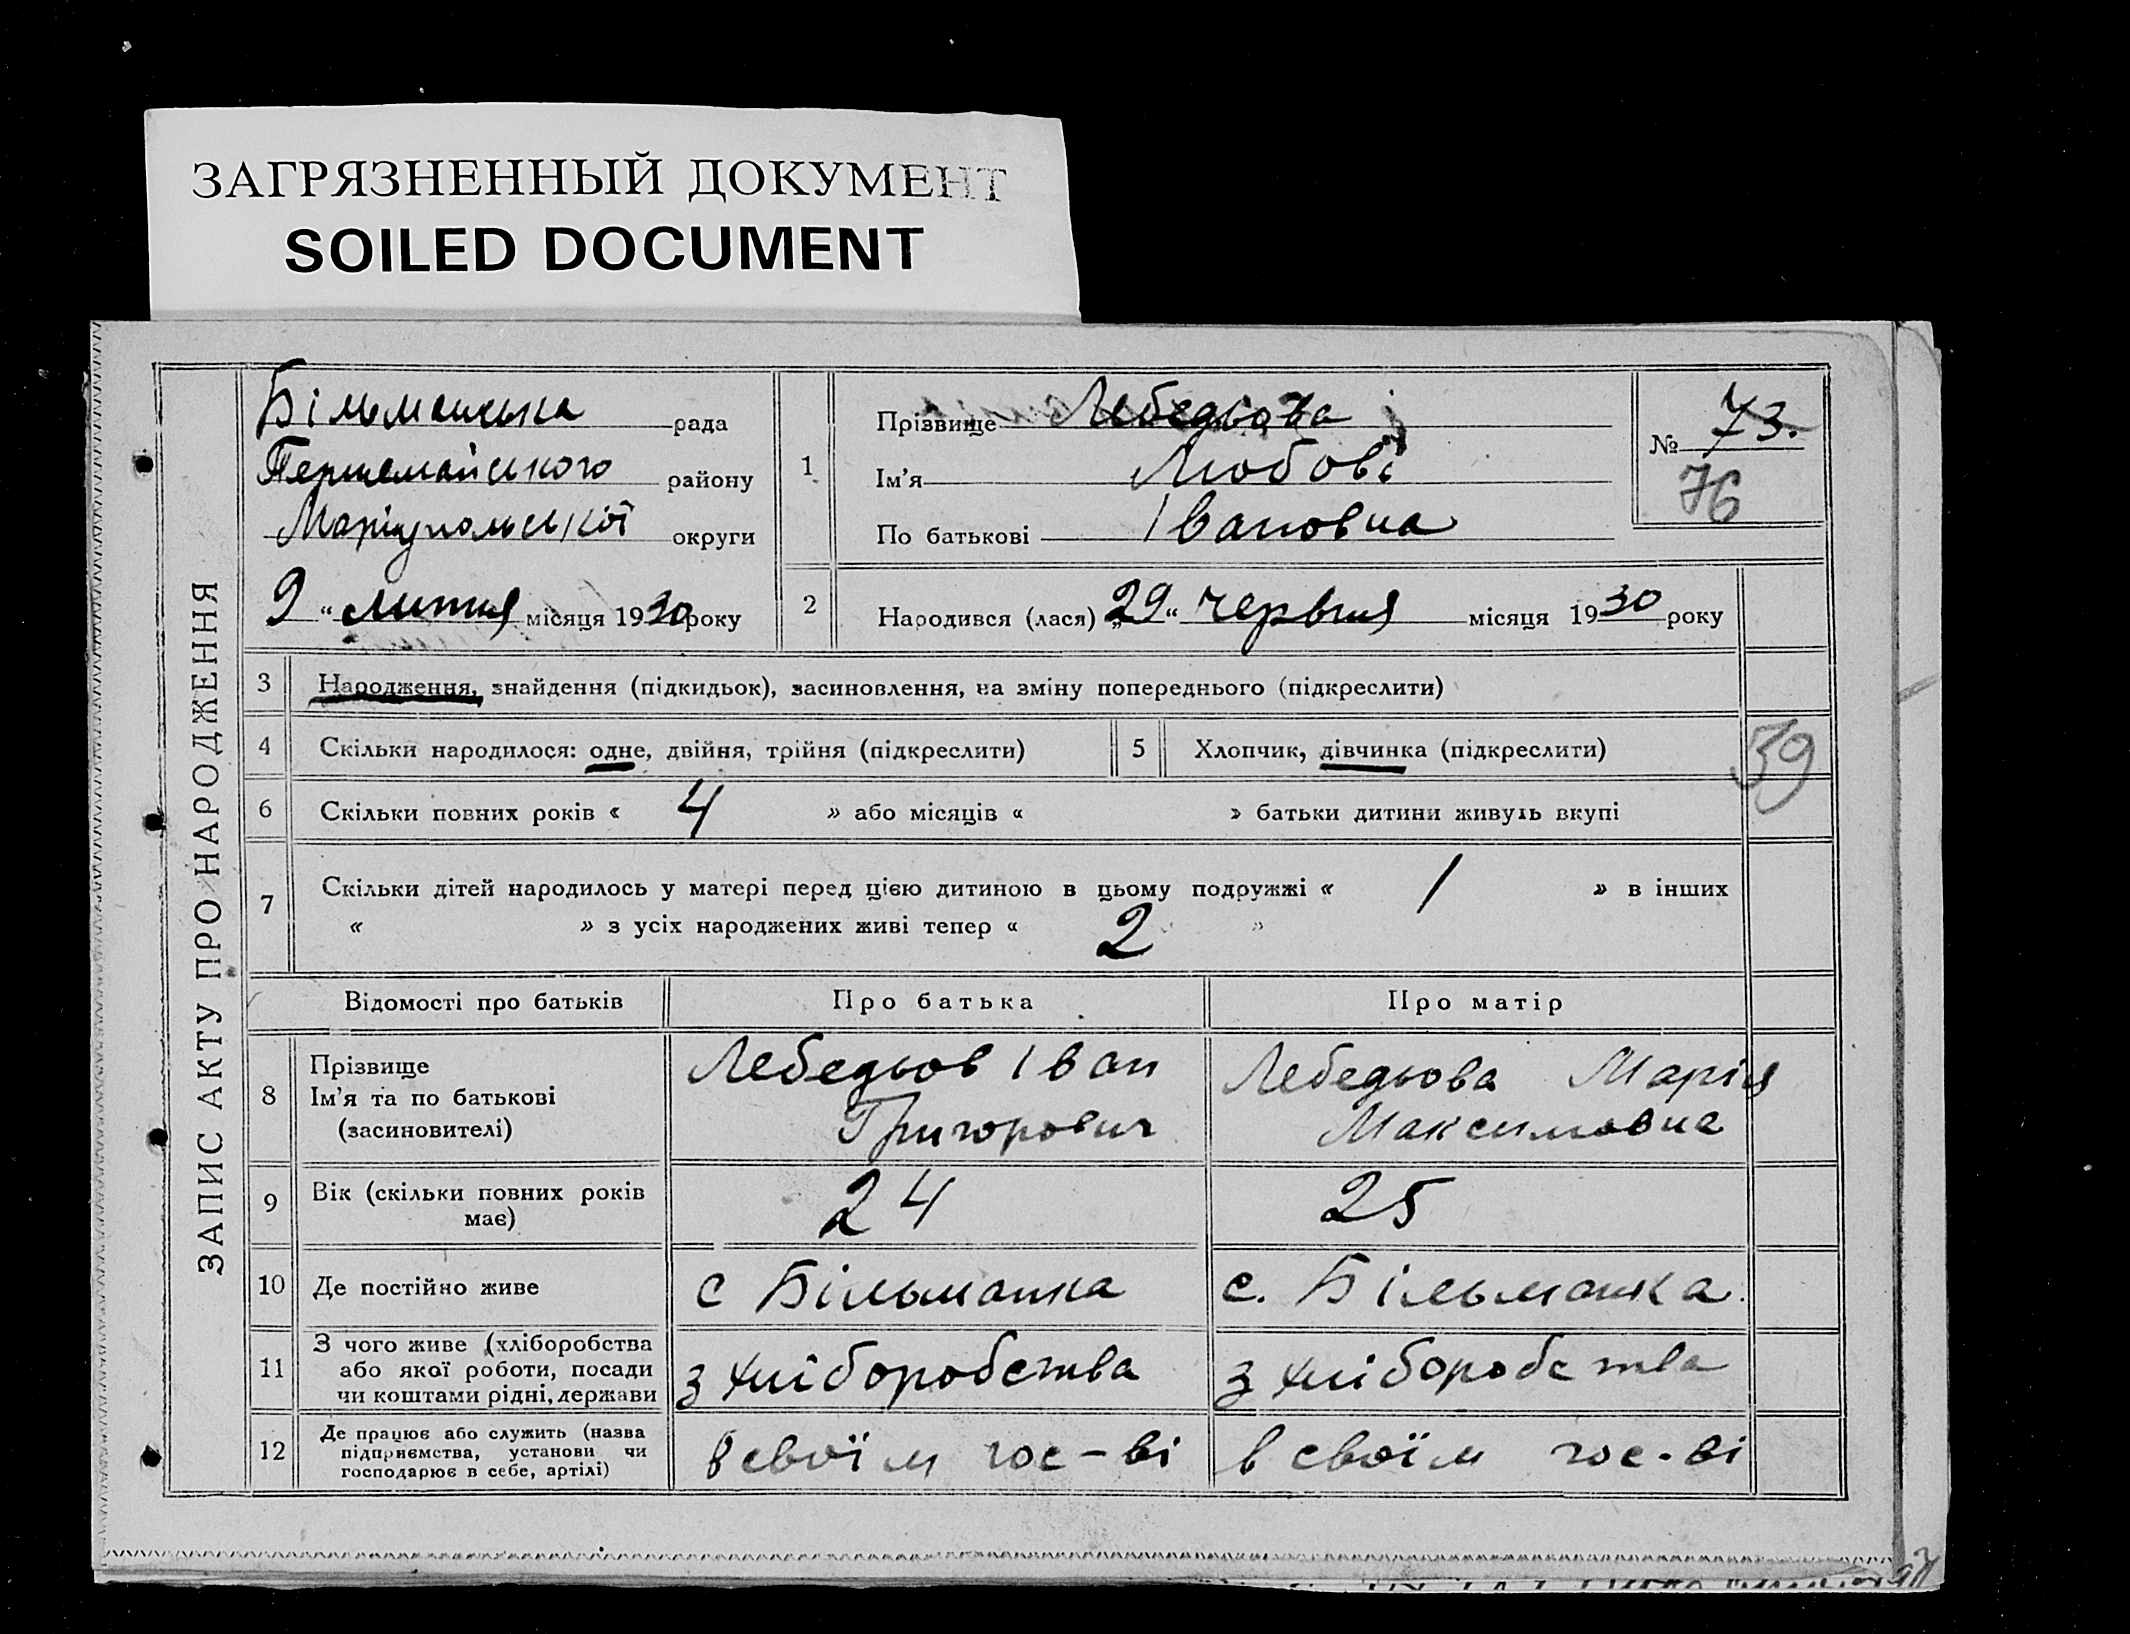 ЗАГРЯЗНЕННЫЙ ДОКУМЕНТ
SOILED DOCUMENT
ЗАПИС АКТУ ПРО НАРОДЖЕННЯ
Більманська рада
Першемайського району
Маріупольської округи
9 “ липня місяця 1930 року
1
Прізвище Лебедьова
Ім'я Любов
По батькові Івановна
№ 73.
76
2 Народився (лася) „29“ червня місяця 1930 року
3 Народження, знайдення (підкидьок), засиновлення, на зміну попереднього (підкреслити)
4 Скільки народилося: одне, двійня, трійня (підкреслити) 5 Хлопчик, дівчинка (підкреслити)
39
6 Скільки повних років « 4 » або місяців « » батьки дитини живуть вкупі
7 Скільки дітей народилось у матері перед цією дитиною в цьому подружжі « 1 » в інших
« » з усіх народжених живі тепер « 2 »
Відомості про батьків Про батька Про матір
8 Прізвище
Ім'я та по батькові
(засиновителі)
Лебедьов Іван
Григорович
Лебедьова Марія
Максимовна
9 Вік (скільки повних років
має)
24
25
10 Де постійно живе с Більманка с. Більманка.
11 З чого живе (хліборобства
або якої роботи, посади
чи коштами рідні, держави
з хліборобства
з хліборобства
12 Де працює або служить (назва
підприємства, установи чи
господарює в себе, артілі)
в своїм гос-ві
в своїм гос-ві